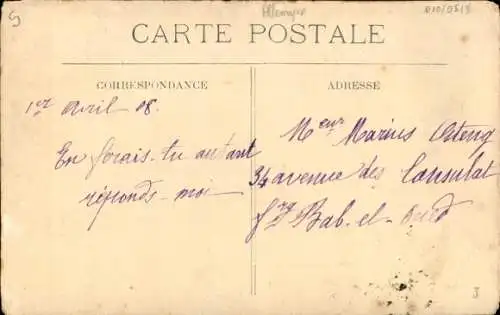 5
Allemagne
CARTE POSTALE
CORRESPONDANCE
ADRESSE
1er Avril 08.
En ferais-tu autant
réponds-moi
Meur Marius Osteng
34 avenue des Consulat
fg Bab-el-Oued